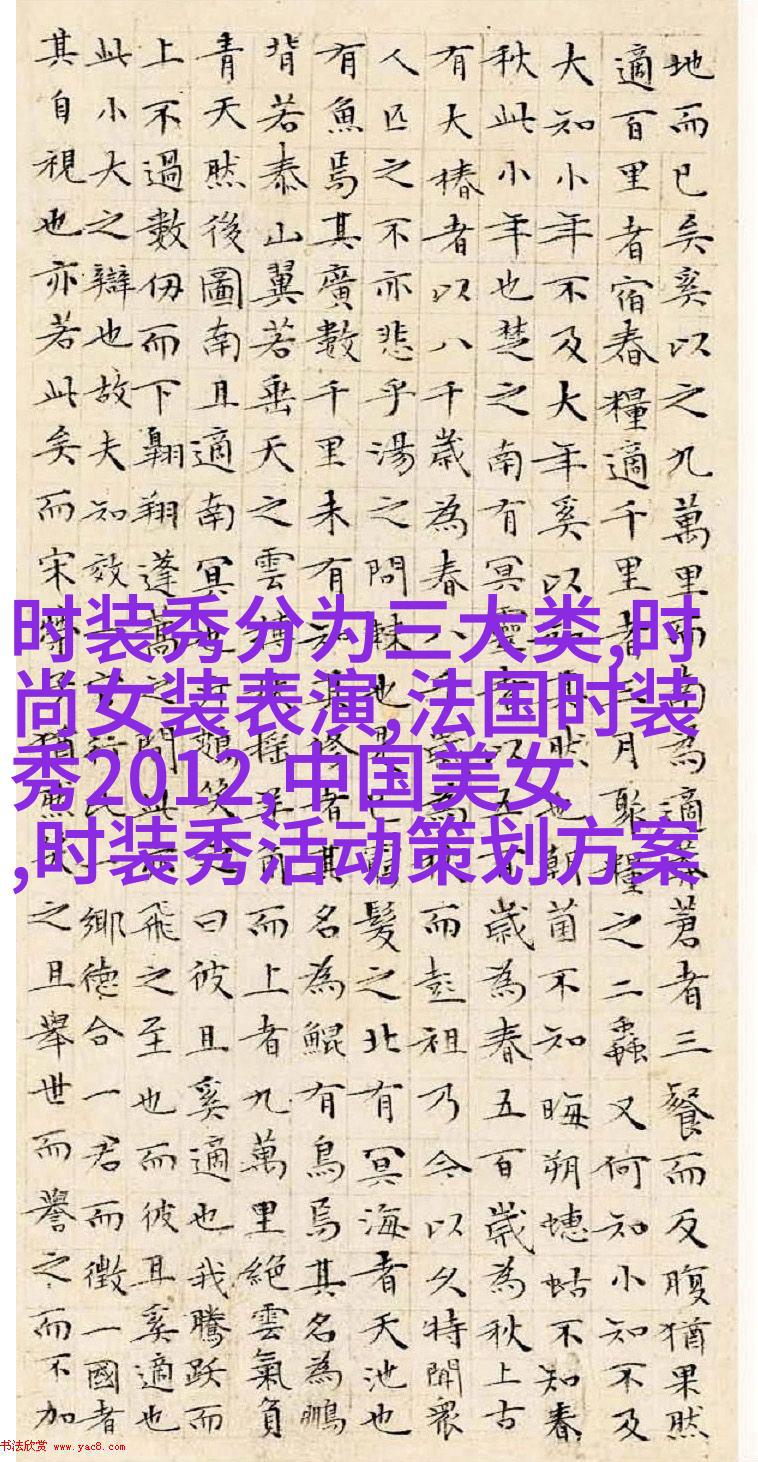 地而已矣奚以之九萬里而南為適莽蒼者三餐而反腹猶果然
適百里者宿舂糧適千里者三月聚糧之二蟲又何知小知不及
大知小年不及大年奚以知其然也朝菌不知晦朔蟪蛄不知春
秋此小年也楚之南有冥靈者以五百歲為春五百歲為秋上古
有大椿者以八千歲為春八千歲為秋而彭祖乃今以久特聞眾
人匹之不亦悲乎湯之問棘也是已窮髮之北有冥海者天池也
有魚焉其廣數千里未有知其修者其名為鯤有鳥焉其名為鵬
背若泰山翼若垂天之雲摶扶搖羊角而上者九萬里絕雲氣負
青天然後圖南且適南冥也斥鴳笑之曰彼且奚適也我騰躍而
上不過數仞而下翱翔蓬蒿之間此亦飛之至也而彼且奚適也
此小大之辯也故夫知效一官行比一鄉德合一君而徵一國者
其自視也亦若此矣而宋榮子猶然笑之且舉世而譽之而不加
时装秀分为三大类,时
尚女装表演,法国时装
秀2012,中国美女
,时装秀活动策划方案
书法欣赏 www.yac8.com